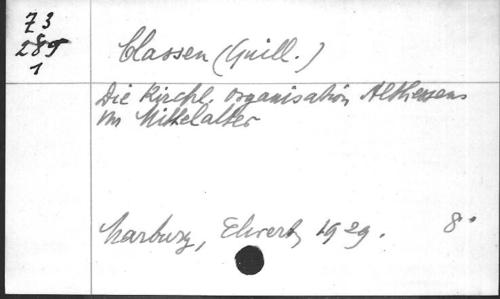 73
289
1
Classen (Guill.)
Die kirchl. Organisation Althessens
im Mittelalter
Marburg, Elwert, 1929. 8°